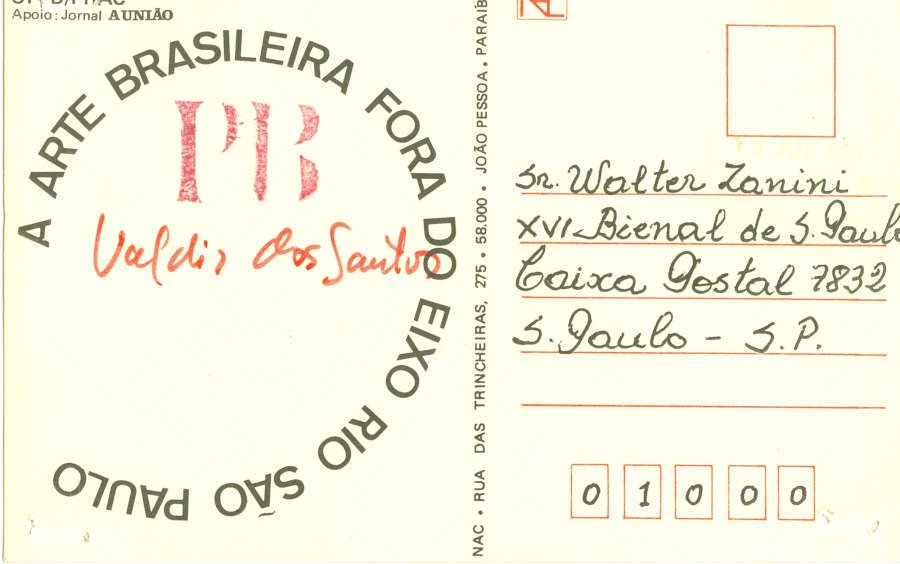 Apoio: Jornal A UNIÃO
A ARTE BRASILEIRA FORA DO EIXO RIO SÃO PAULO
PB
Valdir dos Santos
NAC • RUA DAS TRINCHEIRAS, 275 • 58.000 • JOÃO PESSOA • PARAÍB
Sr. Walter Zanini
XVI-Bienal de S. Paulo
Caixa Postal 7832
S. Paulo - S.P.
0 1 0 0 0